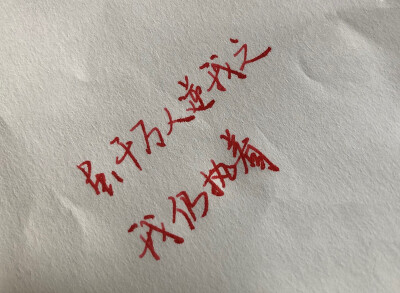 虽千万人逆我之
我仍执着